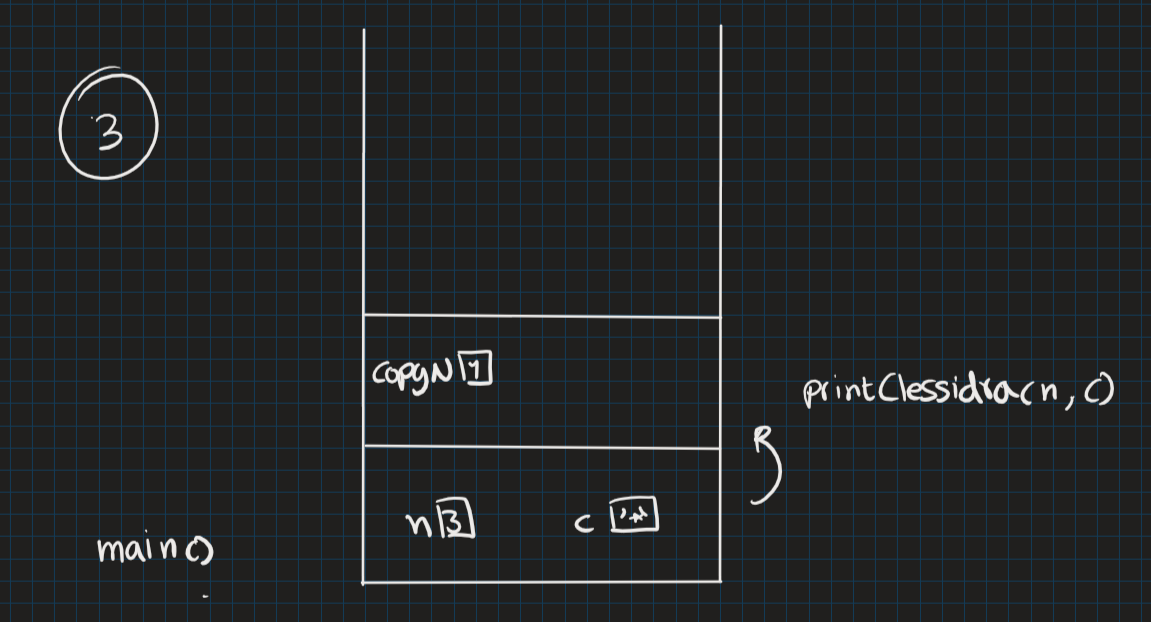 3
copyN 1
printClessidra(n, c)
n 3 c '*'
main()